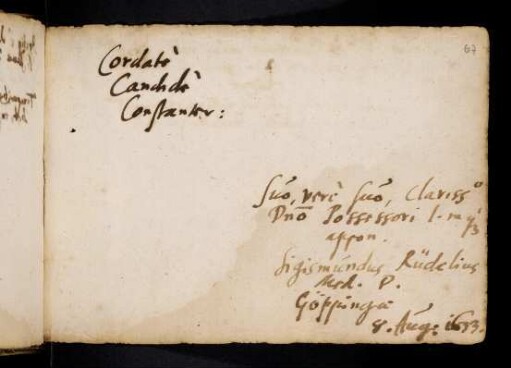 67
Cordatè
Candidè
Constanter:
Suo, verè suo, Clarissº
Dnō Possessori l. m q3
appon.
Sigismundus Rüdelius
Med. D.
Göppingæ
8. Aug: 1653.